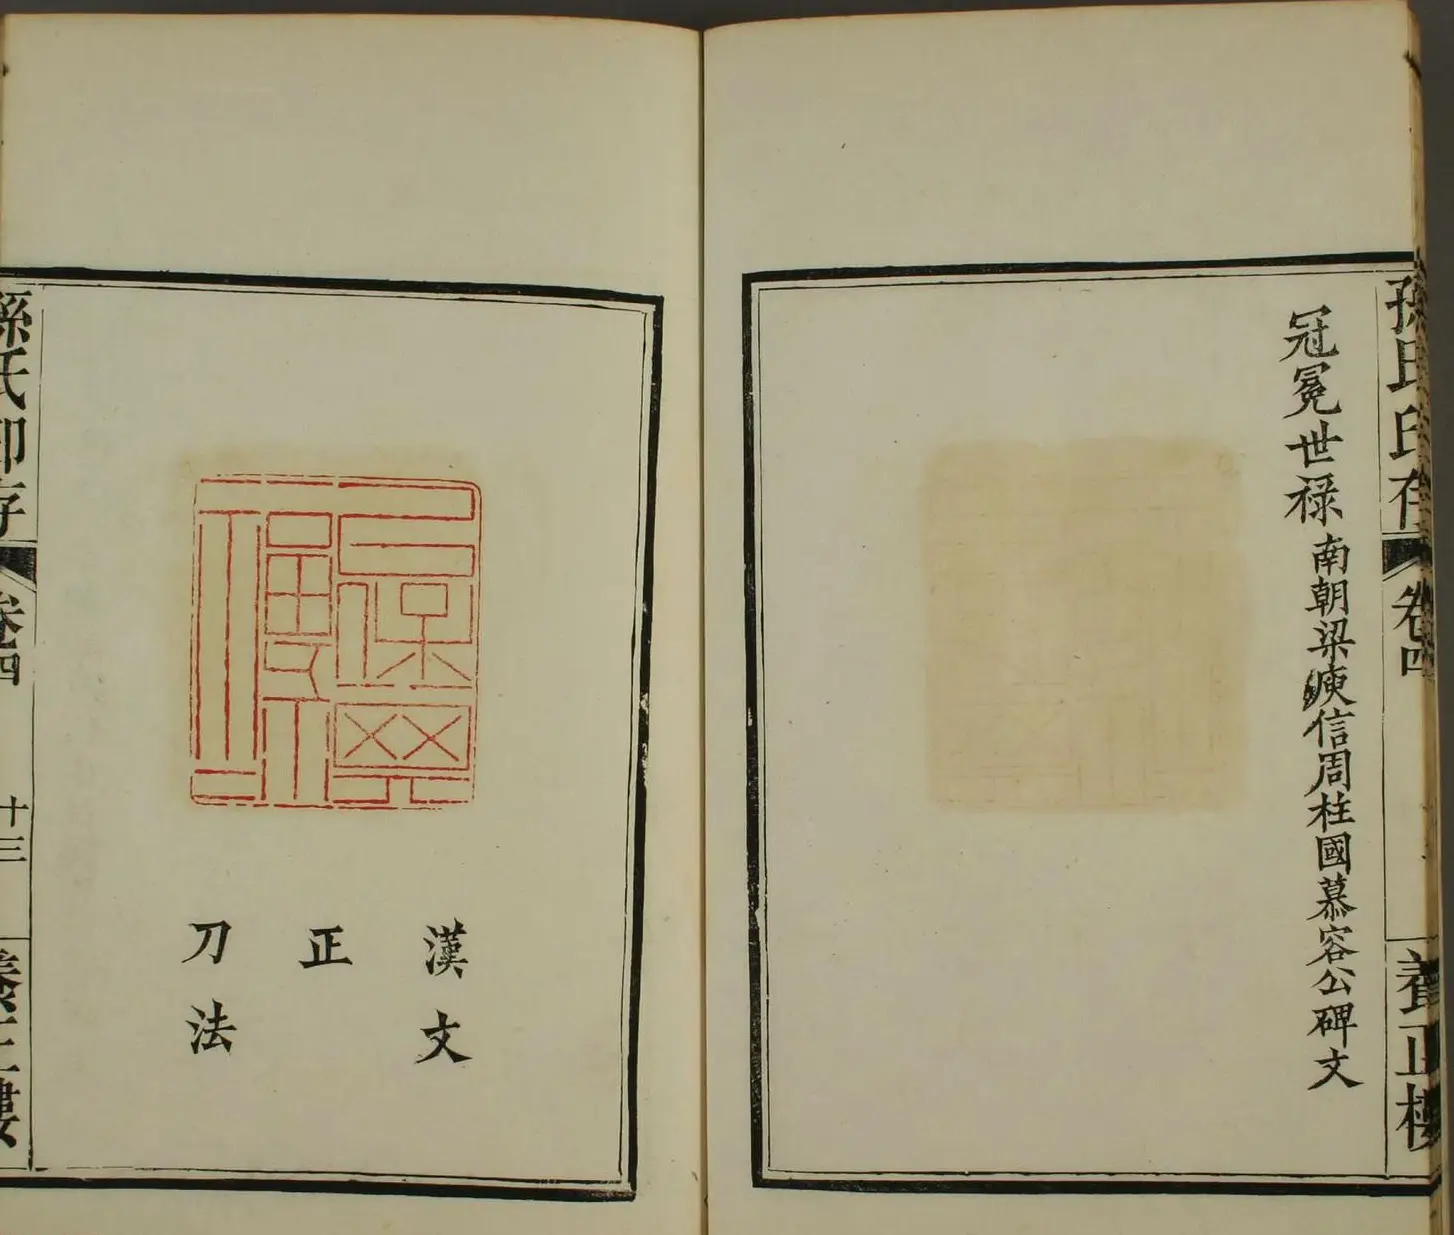 孫氏印存
卷四
養正樓
冠冕世禄 南朝梁庾信周柱國慕容公碑文
漢文
正
刀法
孫氏印存
卷四
十三
養正樓